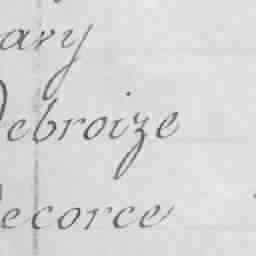 avy
Debroize
ecorce